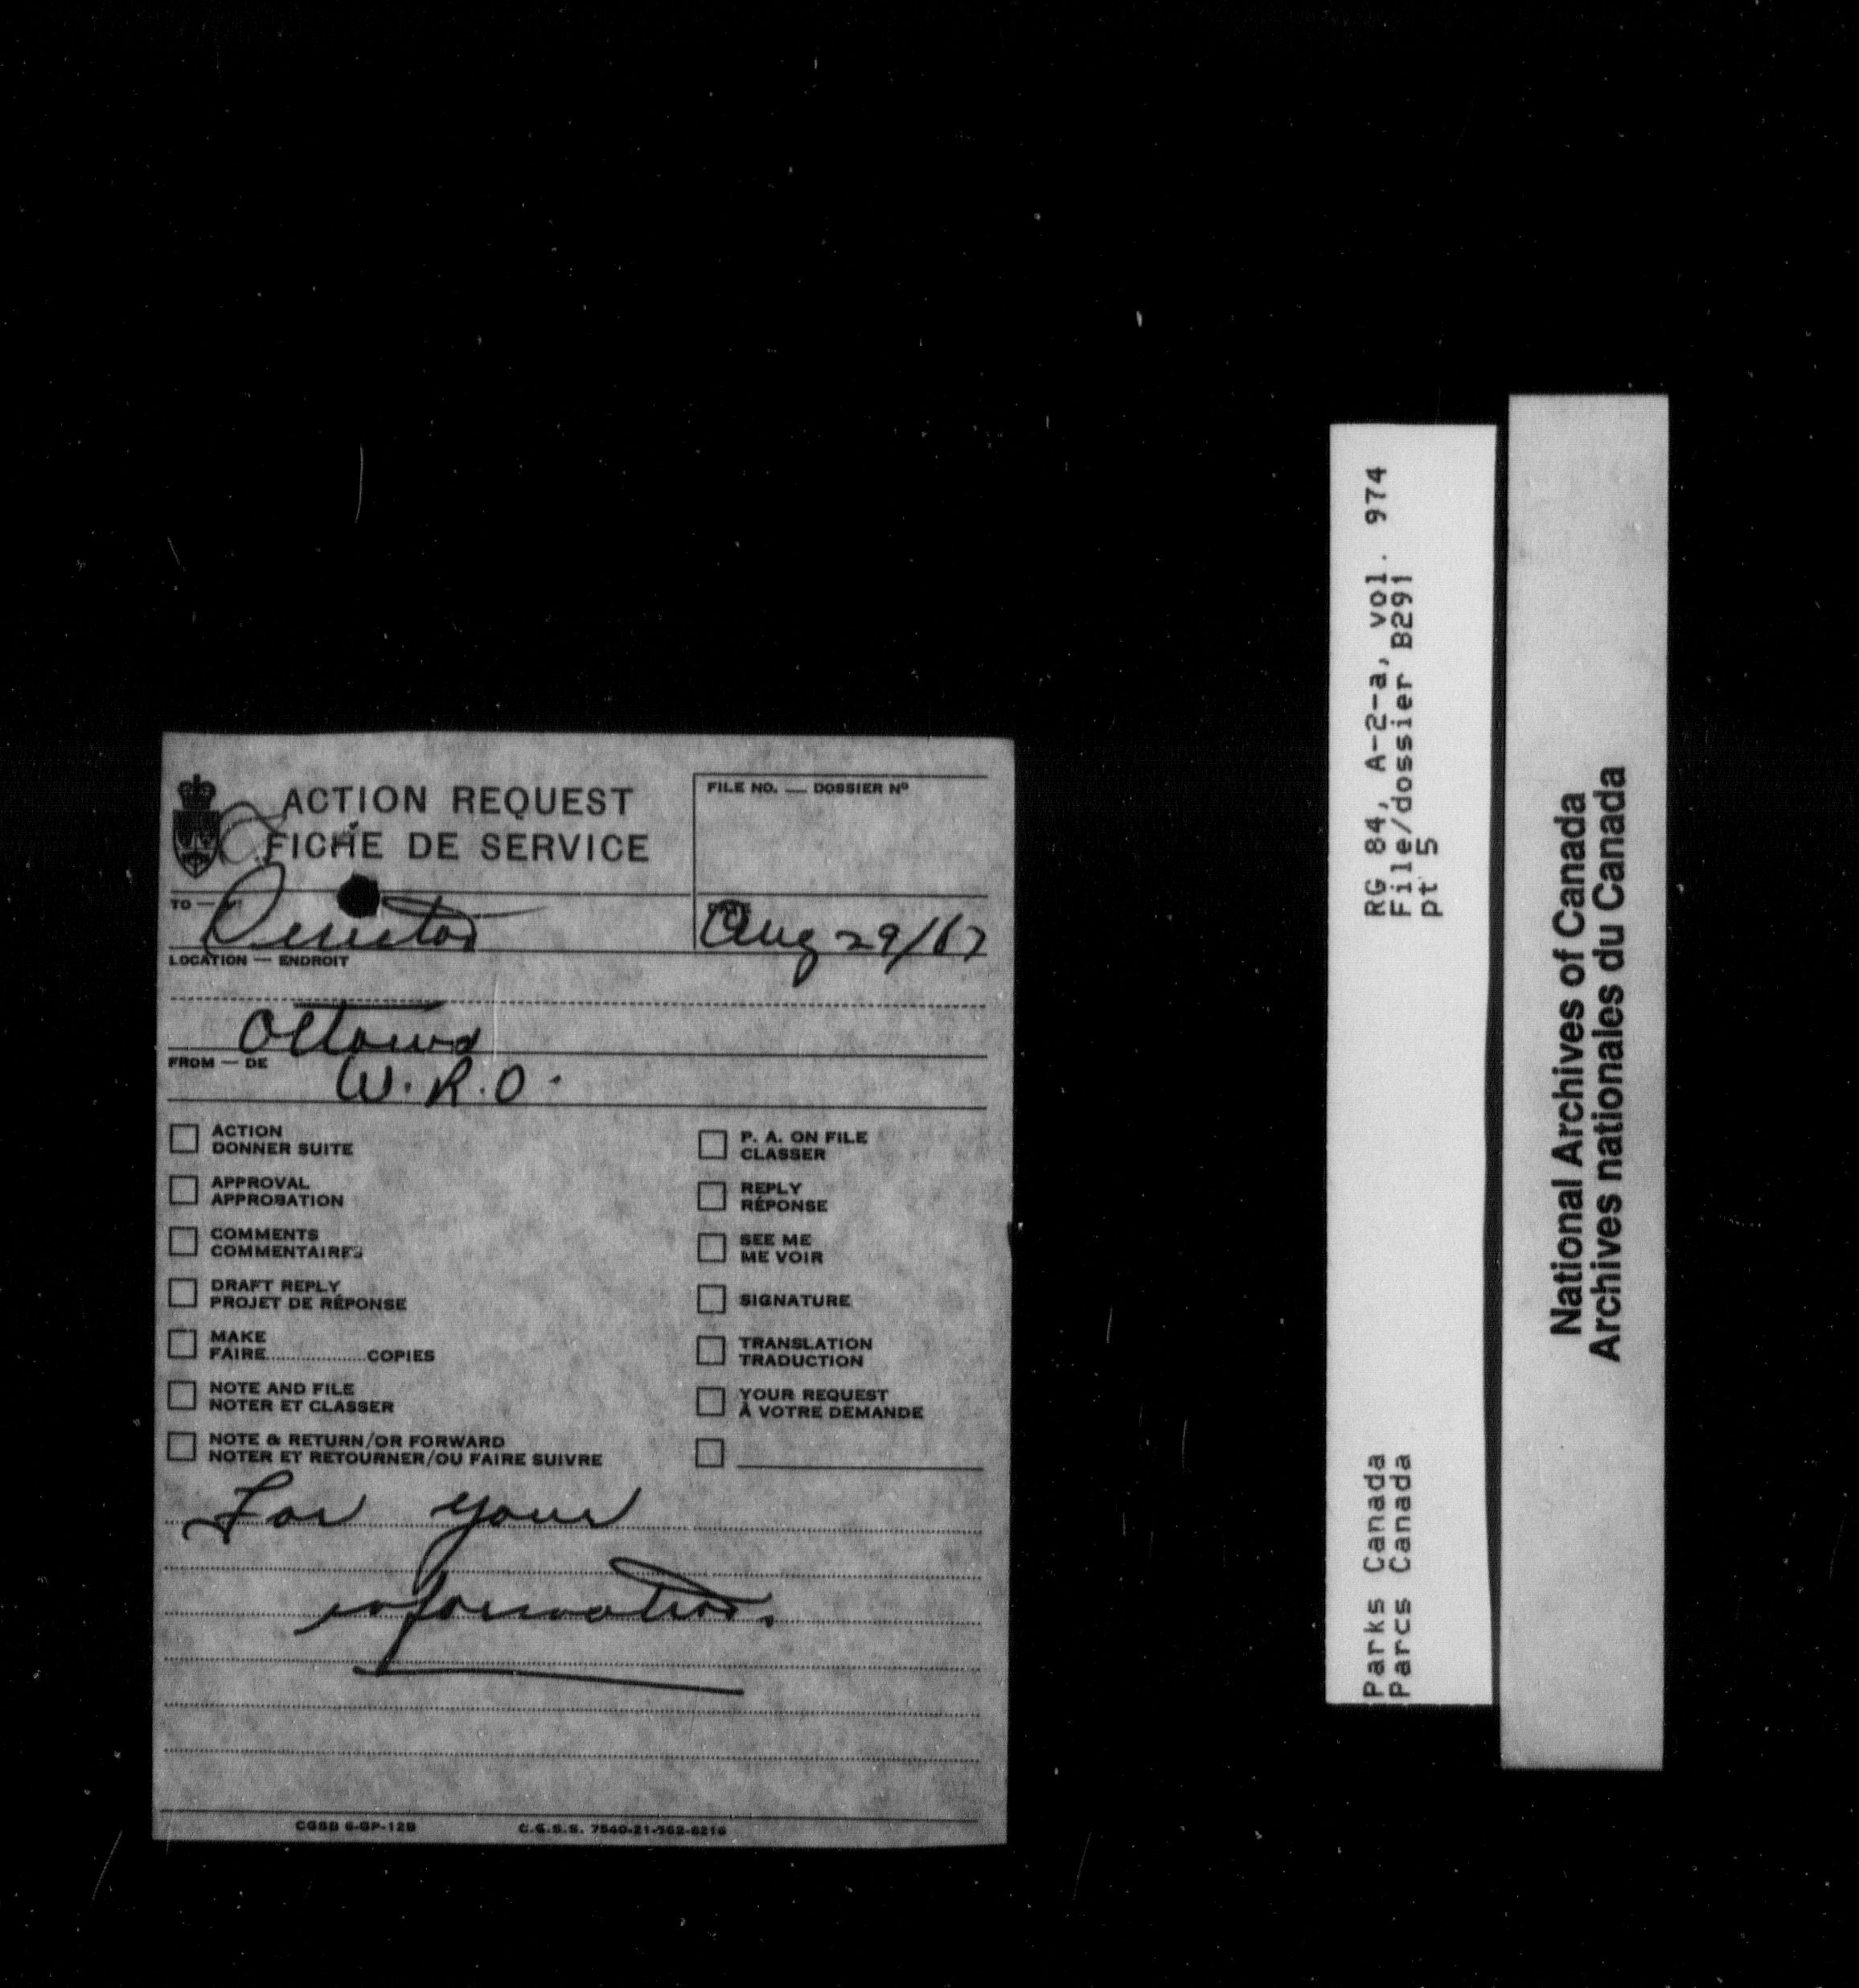 ACTION REQUEST
FICHE DE SERVICE
FILE NO. — DOSSIER Nº
TO —
Director
Aug 29/67
LOCATION — ENDROIT
Ottawa
FROM — DE
W.R.O.
ACTION
DONNER SUITE
APPROVAL
APPROBATION
COMMENTS
COMMENTAIRES
DRAFT REPLY
PROJET DE RÉPONSE
MAKE
FAIRE COPIES
NOTE AND FILE
NOTER ET CLASSER
NOTE & RETURN/OR FORWARD
NOTER ET RETOURNER/OU FAIRE SUIVRE
P. A. ON FILE
CLASSER
REPLY
RÉPONSE
SEE ME
ME VOIR
SIGNATURE
TRANSLATION
TRADUCTION
YOUR REQUEST
À VOTRE DEMANDE
For your
information.
CGSB 6-GP-12B C.G.S.S. 7540-21-562-6216
RG 84, A-2-a, vol. 974
File/dossier B291
pt 5
Parks Canada
Parcs Canada
National Archives of Canada
Archives nationales du Canada